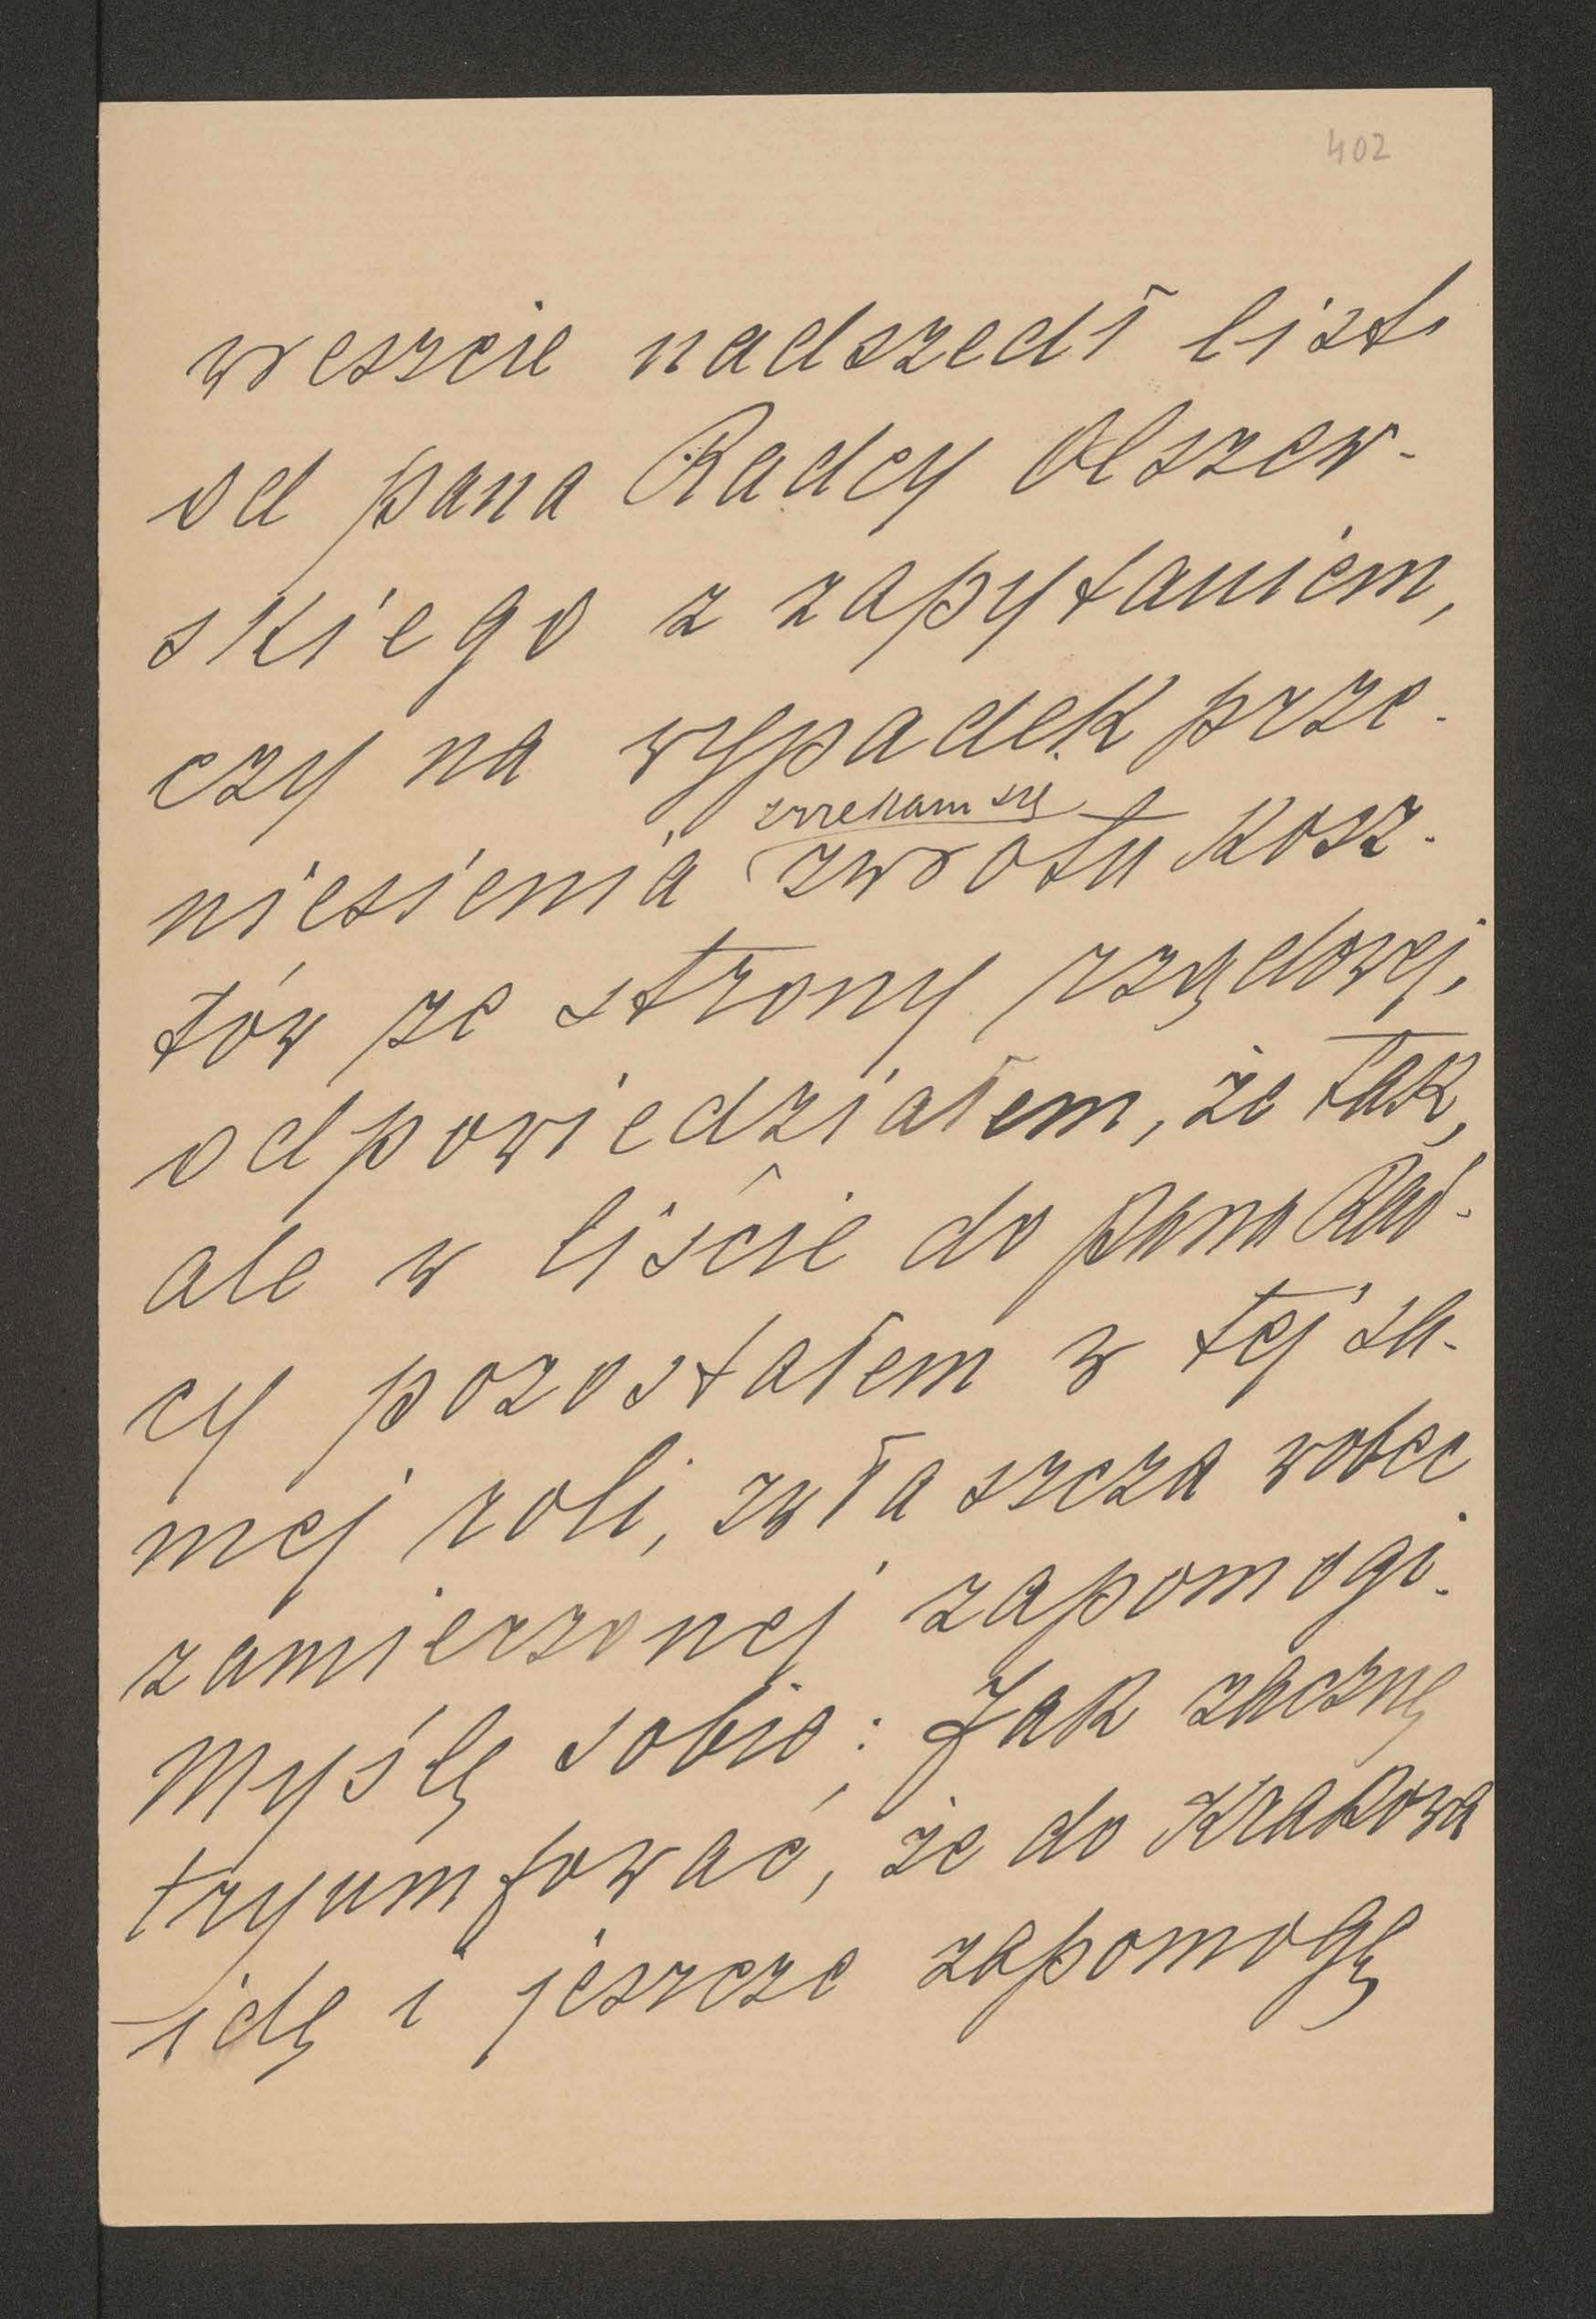 402
wreszcie nadszedł list
od pana Radcy Olszew-
skiego z zapytaniem,
czy na wypadek prze-
zrzekam się
niesienia zwrotu kosz-
tów ze strony rządowej,
odpowiedziałem, że tak,
ale w liście do pana Rad-
cy pozostałem w tej sa-
mej roli, zwłaszcza wobec
zamierzonej zapomogi.
Myślę sobie: Jak zacznę
tryumfować, że do Krakowa
idę i jeszcze zapomogę